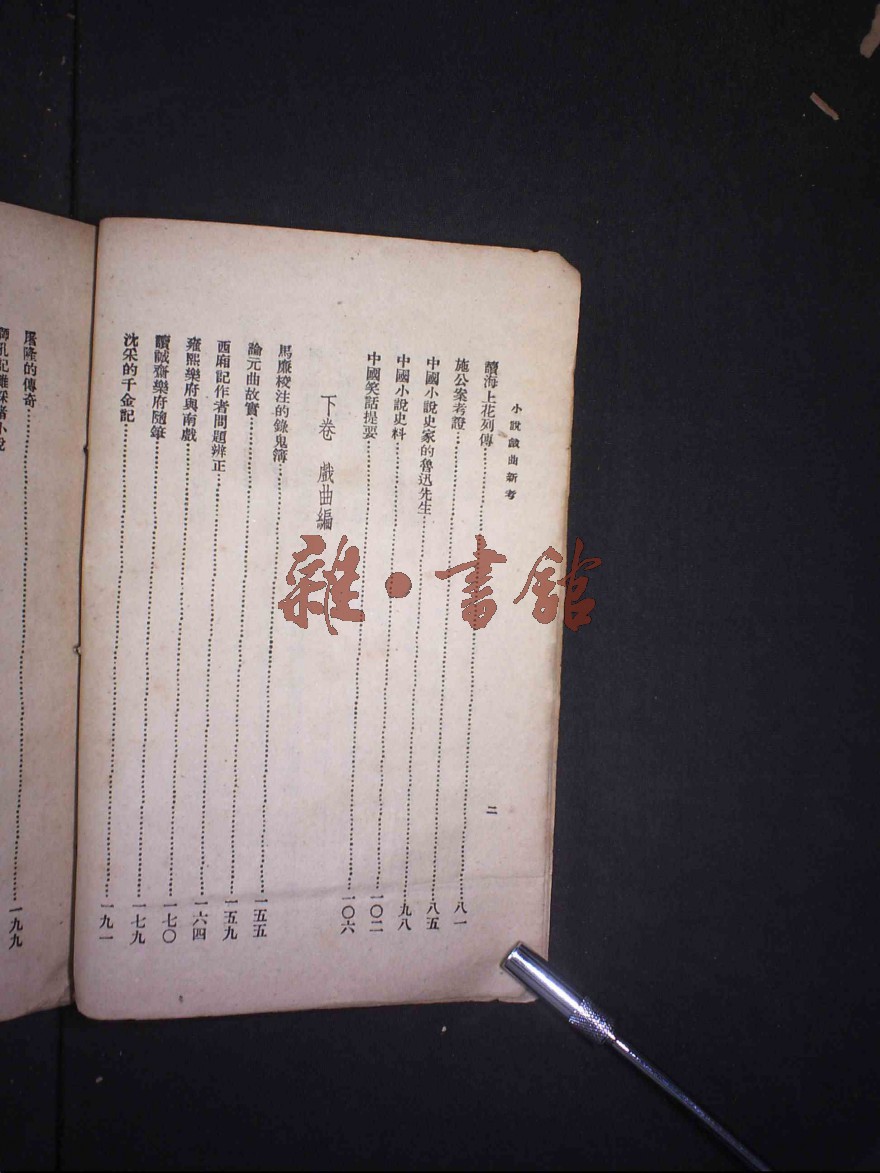 小說戲曲新考
二
讀海上花列傳……八一
施公案考證……八五
中國小說史家的魯迅先生……九八
中國小說史料……一〇二
中國笑話提要……一〇六
下卷 戲曲編
馬廉校注的錄鬼簿……一五五
論元曲故實……一五九
西廂記作者問題辨正……一六四
雍熙樂府與南戲……一七〇
讀誠齋樂府隨筆……一七九
沈采的千金記……一九一
屠隆的傳奇……一九九
雜·書館